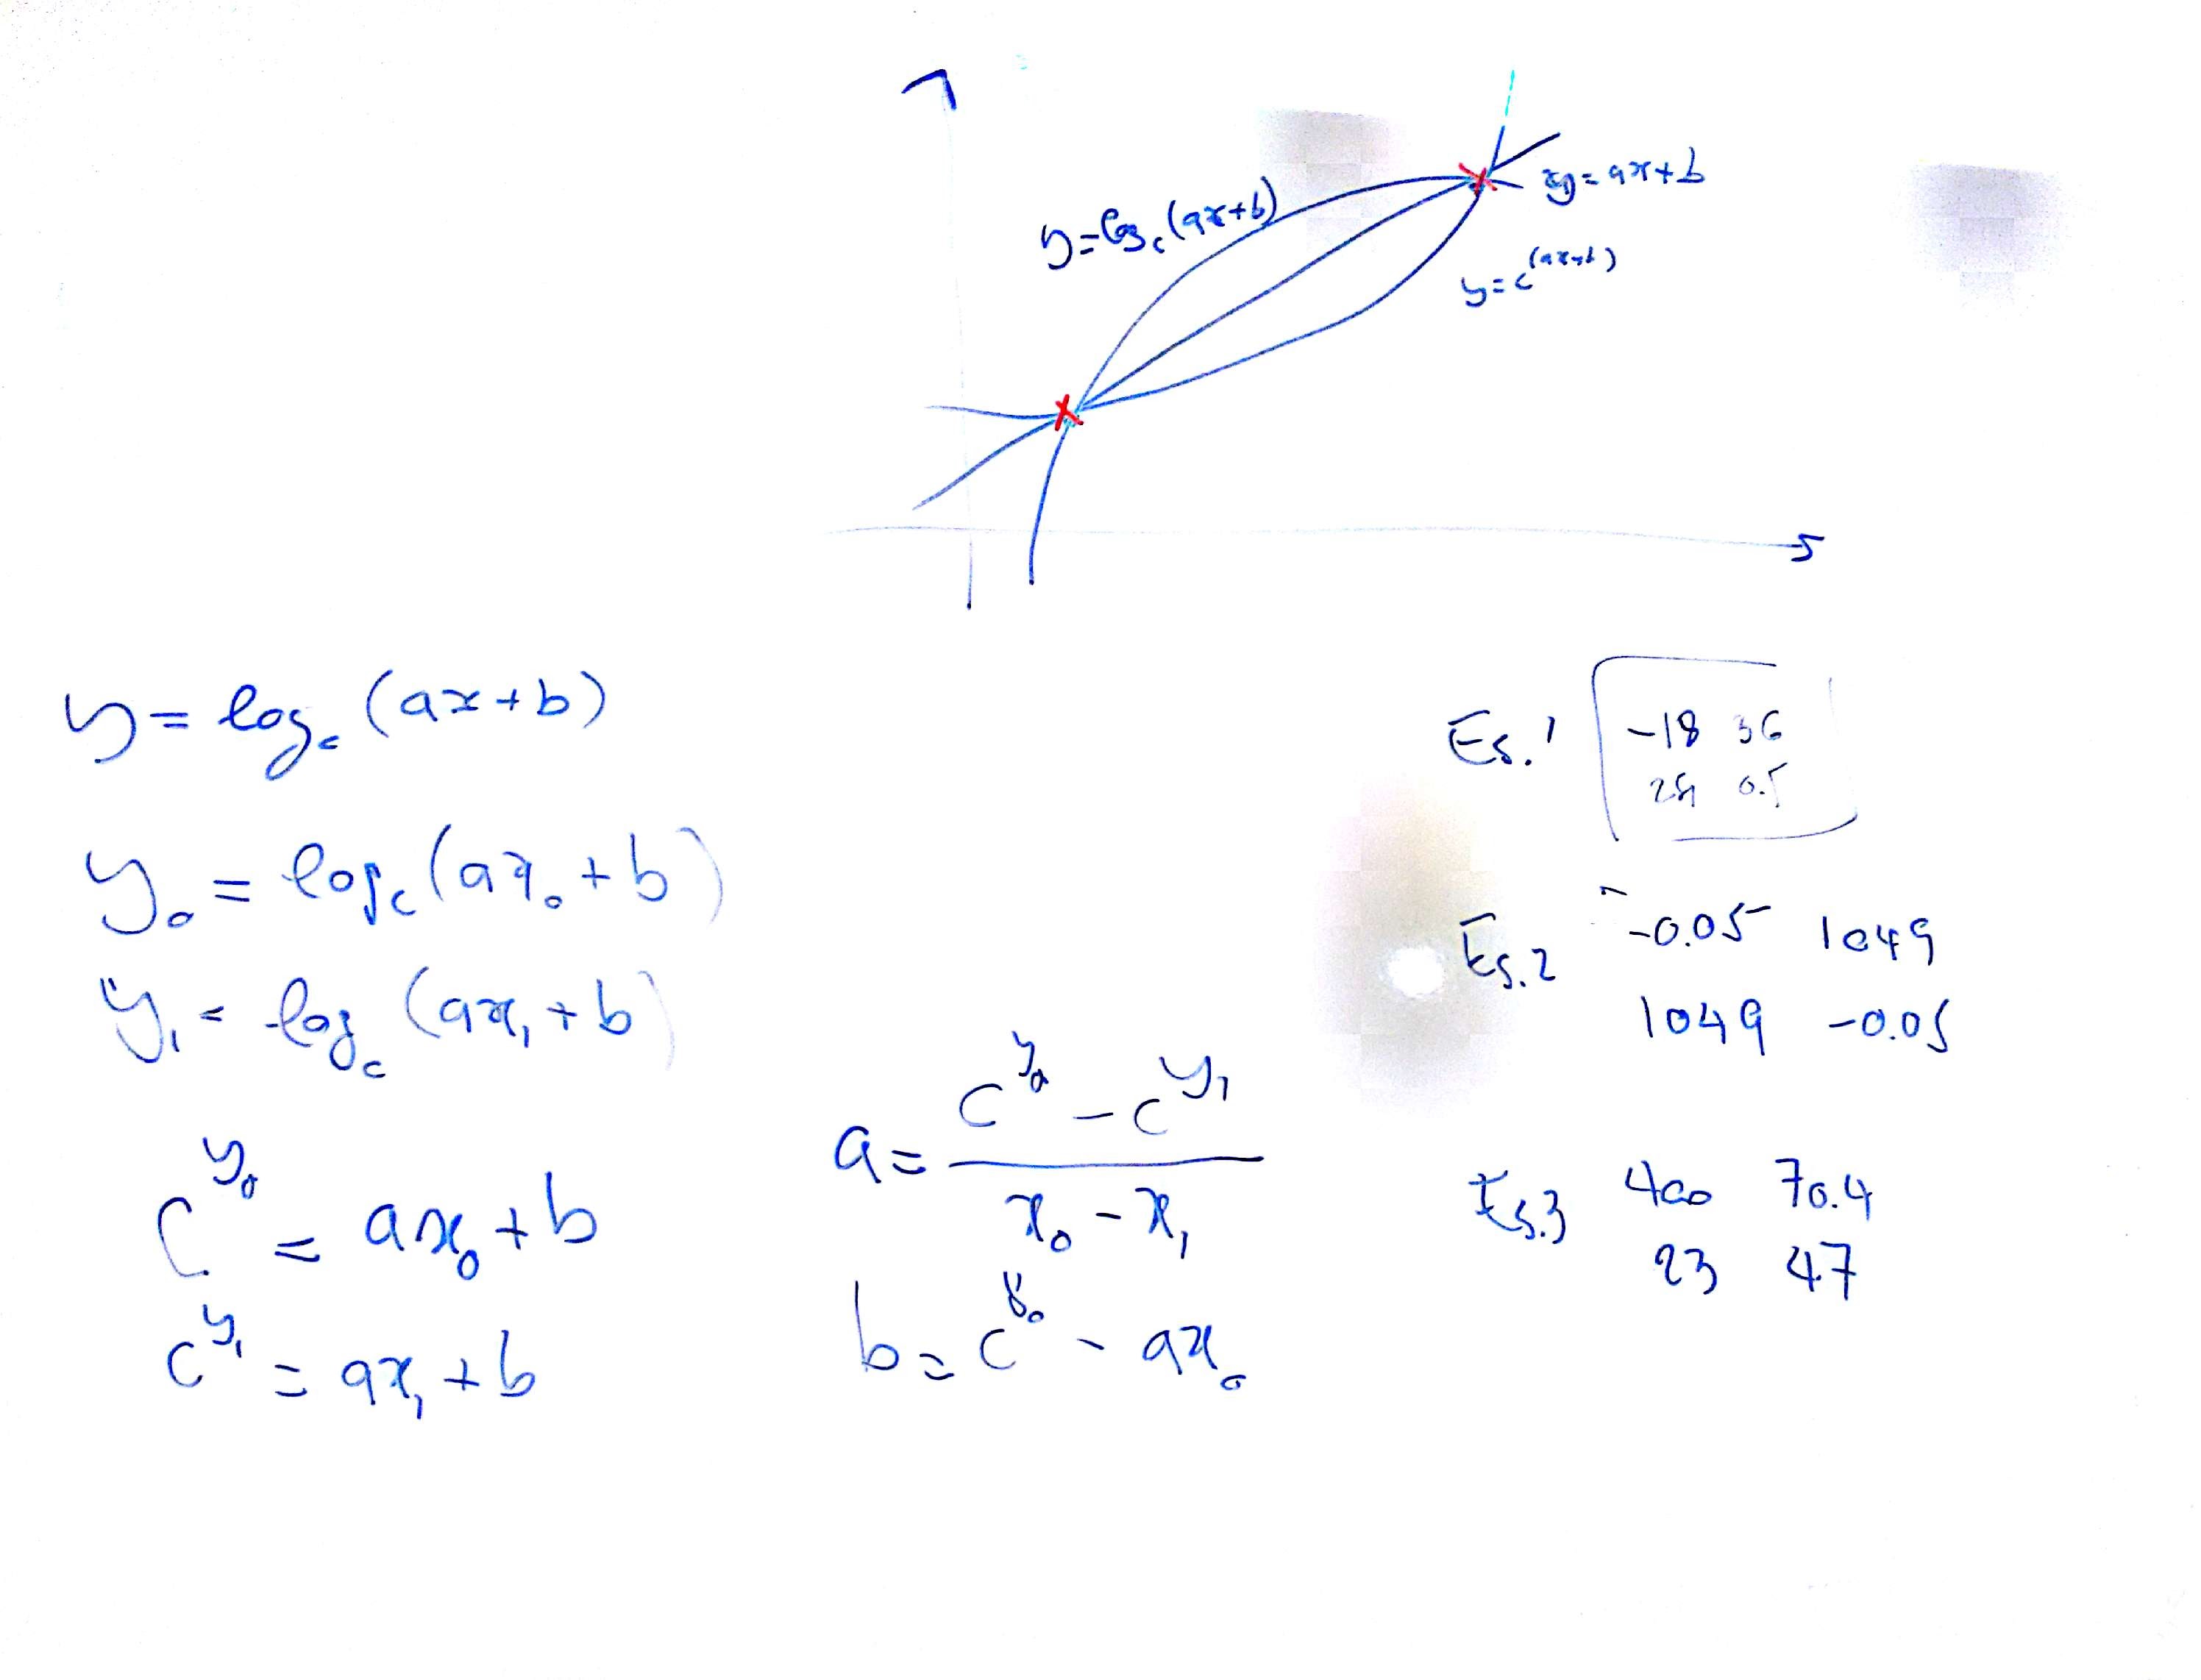 y = log_c (ax+b)
y = ax+b
y = c^(ax+b)
y = log_c (ax+b)
y₀ = log_c (ax₀ + b)
y₁ = log_c (ax₁ + b)
c^y₀ = ax₀ + b
c^y₁ = ax₁ + b
a = (c^y₀ - c^y₁) / (x₀ - x₁)
b = c^y₀ - ax₀
Es.1
-18 36
0.5
Es.2
-0.05 1049
1049 -0.05
Es.3
400 70.4
23 47